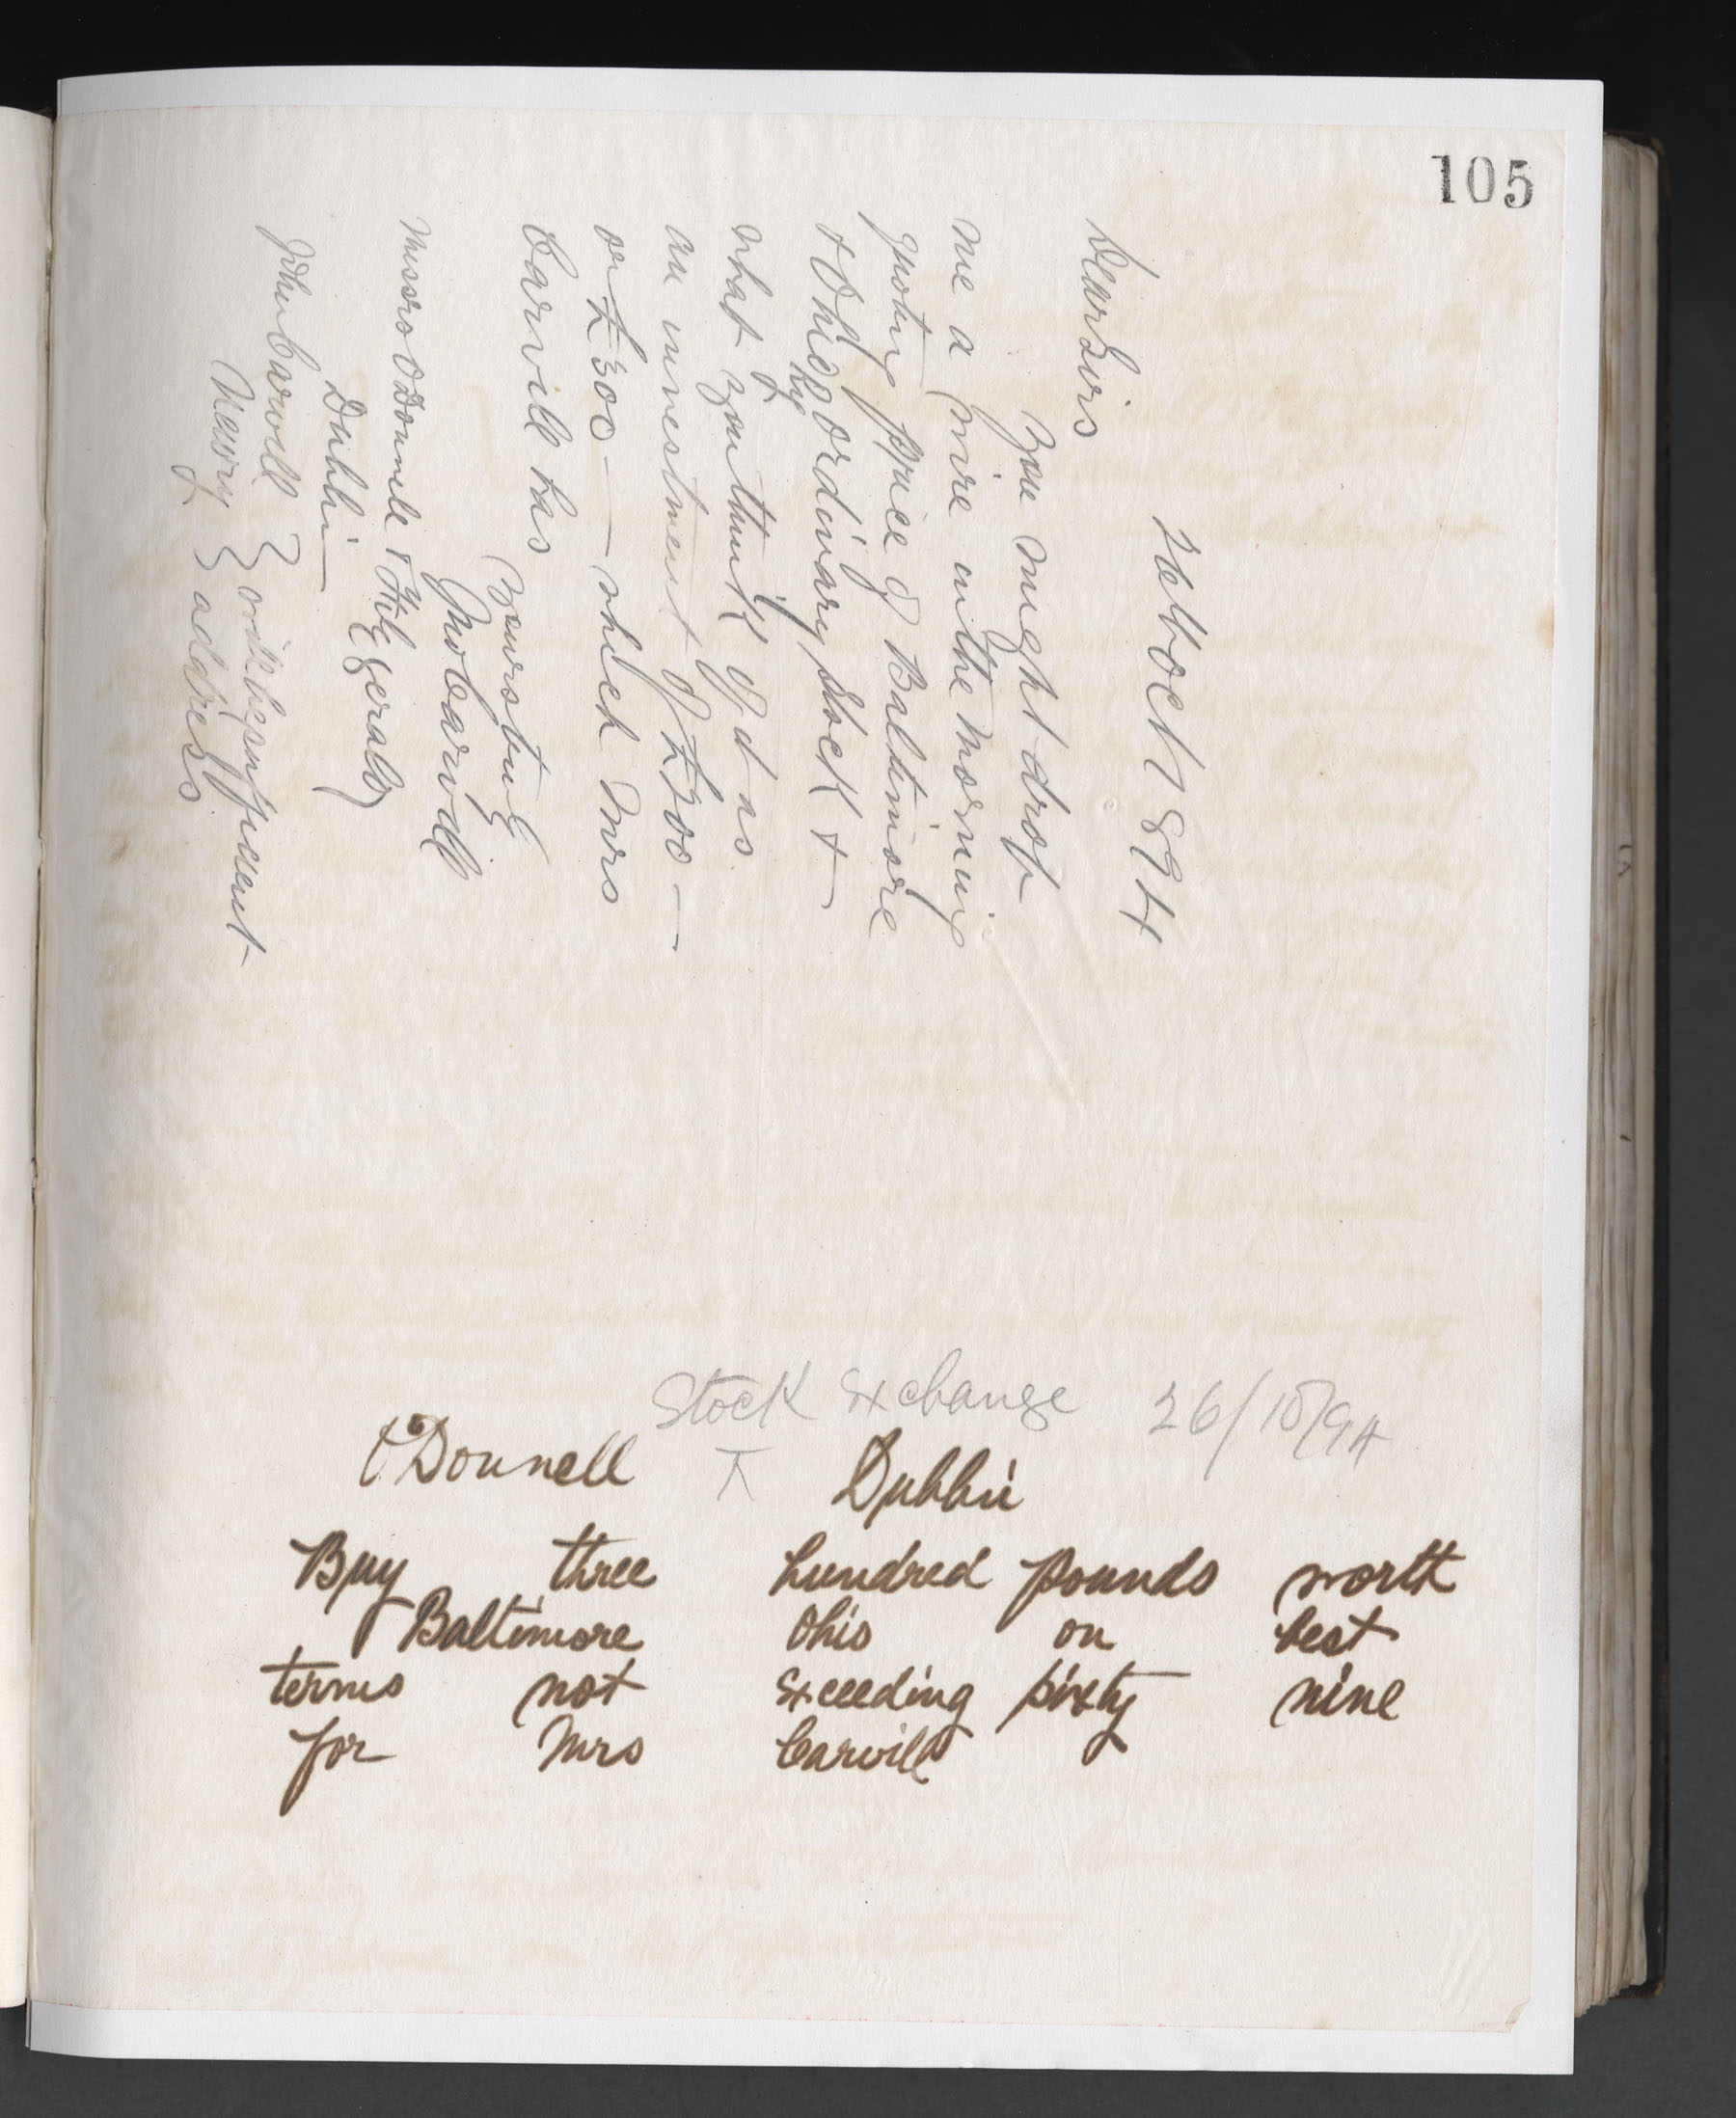 105
26th Oct 1894
Dear Sirs
You might drop
me a wire in the morning
quoting price of Baltimore
& Ohio Ry ordinary stock &
what you think of d as
an investment of £300 —
or £300 — which Mrs
Carvill has
Yours truly
Jno Carvill
Messrs O'Donnell & Fitzgerald
Dublin
John Carvill } will be sufficient
Newry } address
Stock Exchange 26/10/94
O'Donnell Dublin
Buy three hundred pounds worth
Baltimore Ohio on best
terms not exceeding sixty nine
for Mrs Carvill